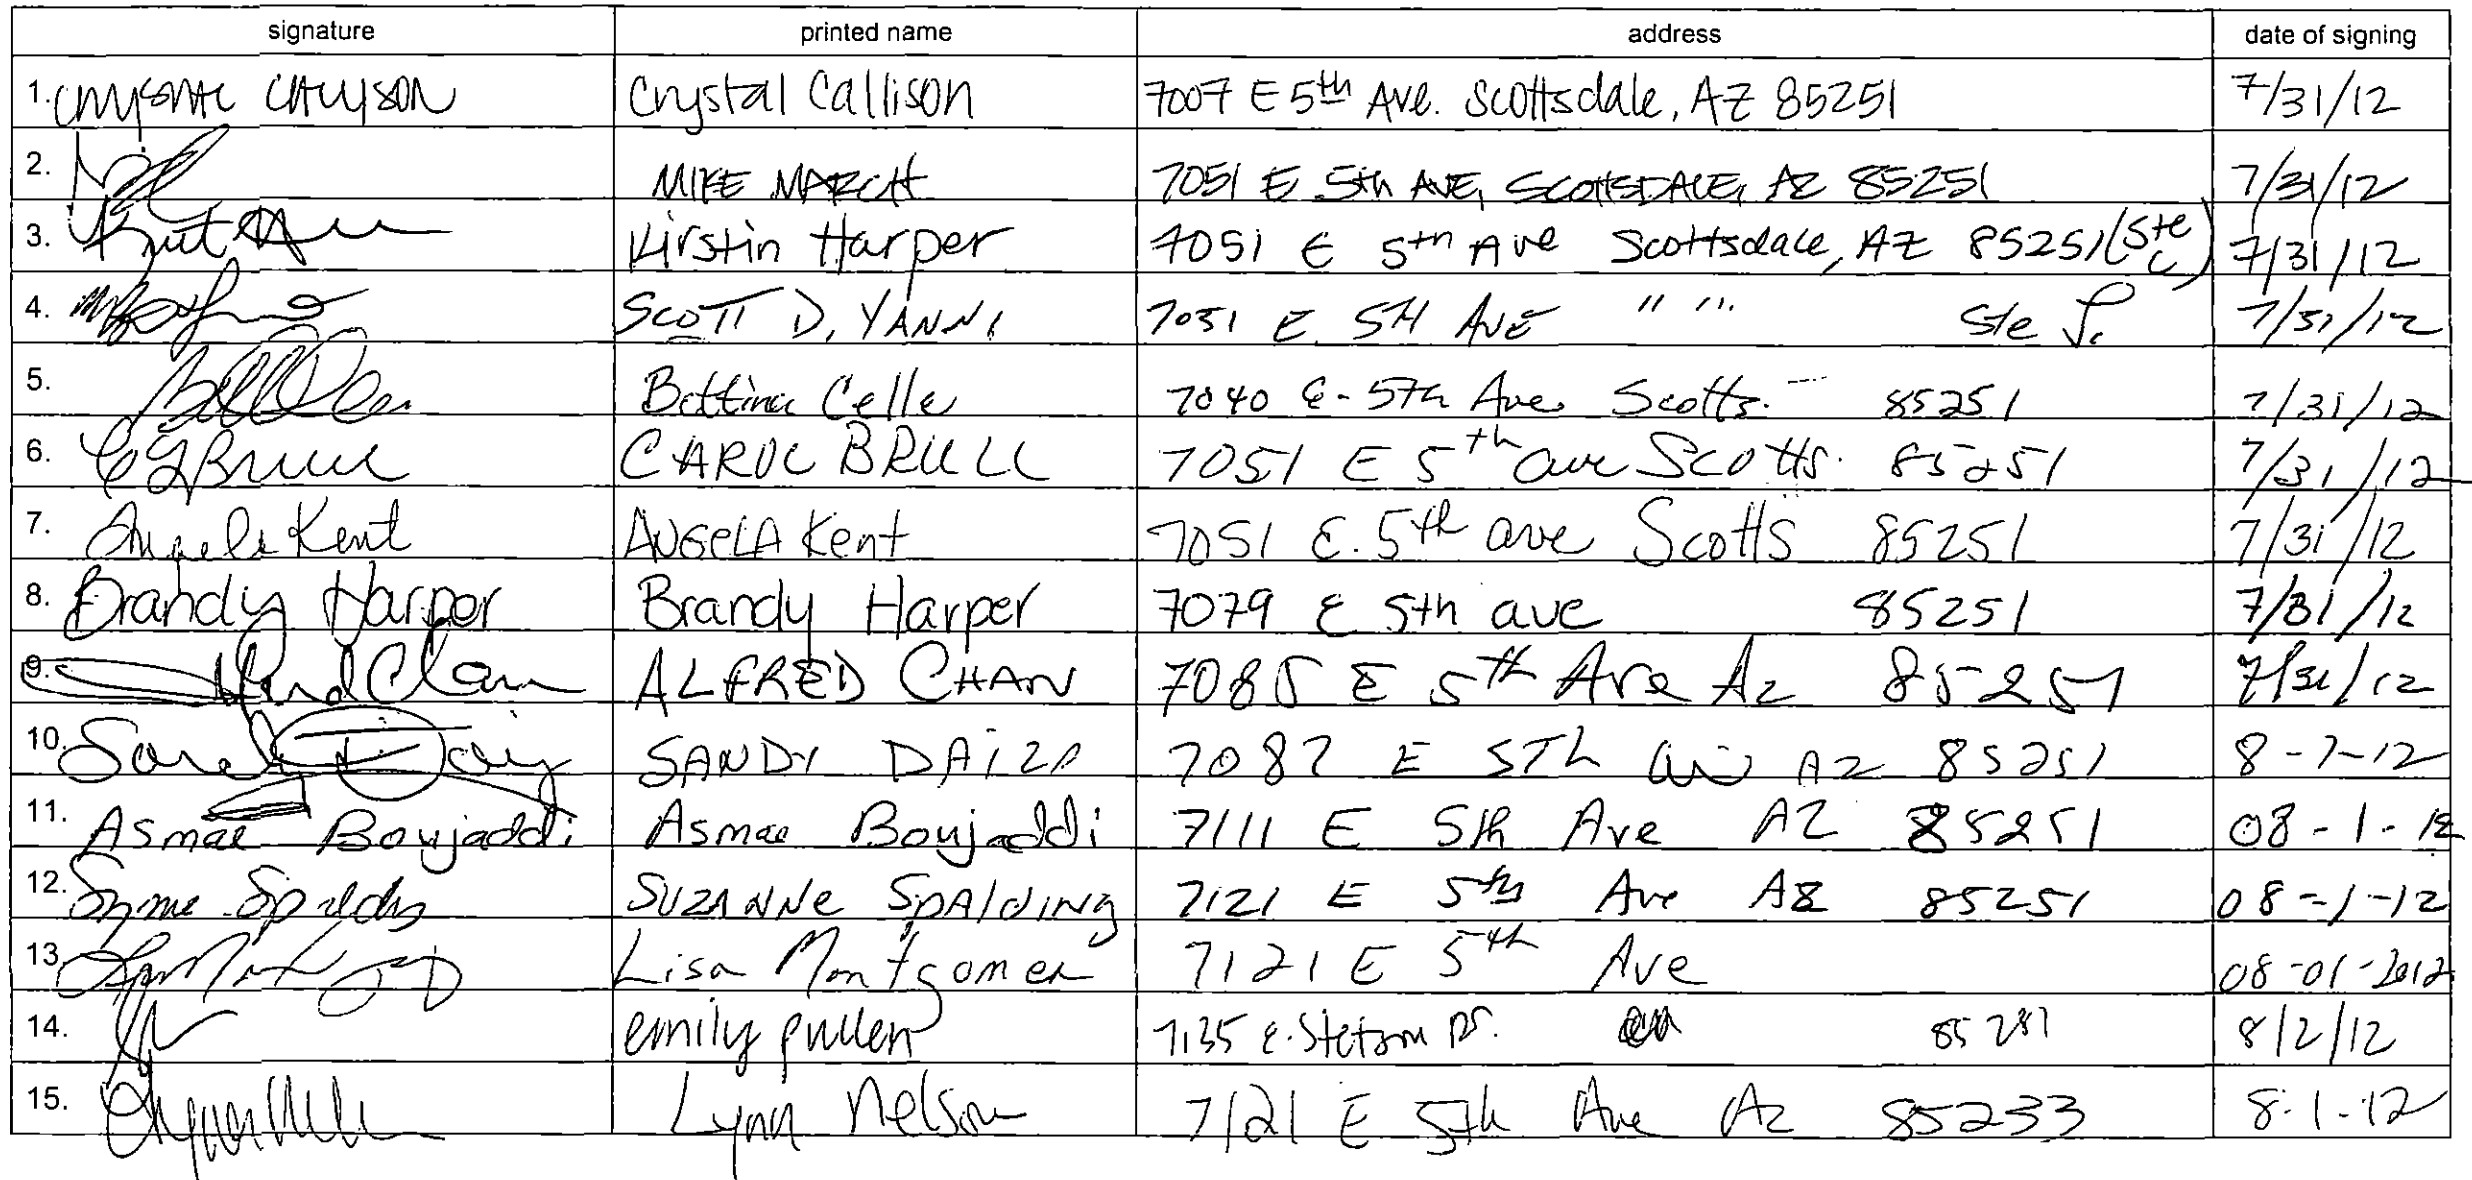 signature printed name address date of signing
1. Crystal Callison Crystal Callison 7007 E 5th Ave. Scottsdale, AZ 85251 7/31/12
2. MIKE MARCH 7051 E 5th AVE, SCOTTSDALE, AZ 85251 7/31/12
3. Kirstin Harper 7051 E 5th Ave Scottsdale, AZ 85251 (Ste C) 7/31/12
4. SCOTT D. YANNI 7051 E 5TH AVE " " Ste 7/31/12
5. Bettina Celle 7040 E. 5th Ave Scotts. 85251 7/31/12
6. CGBrull CAROL BRULL 7051 E 5th ave Scotts. 85251 7/31/12
7. Angela Kent ANGELA Kent 7051 E. 5th ave Scotts 85251 7/31/12
8. Brandy Harper Brandy Harper 7079 E 5th ave 85251 7/31/12
9. Alfred Chan ALFRED CHAN 7085 E 5th Ave Az 85251 7/31/12
10. SANDY 7087 E 5Th AZ 85251 8-1-12
11. Asmae Boujaddi Asmae Boujaddi 7111 E 5th Ave AZ 85251 08-1-12
12. Suzanne Spalding SUZANNE SPAlDING 7121 E 5th Ave AZ 85251 08-1-12
13. Lisa Montgomer 7121 E 5th Ave 08-01-2012
14. emily pullen 7135 E. Stetson Dr. 85281 8/2/12
15. Lynn Nelson 7121 E 5th Ave Az 85233 8-1-12